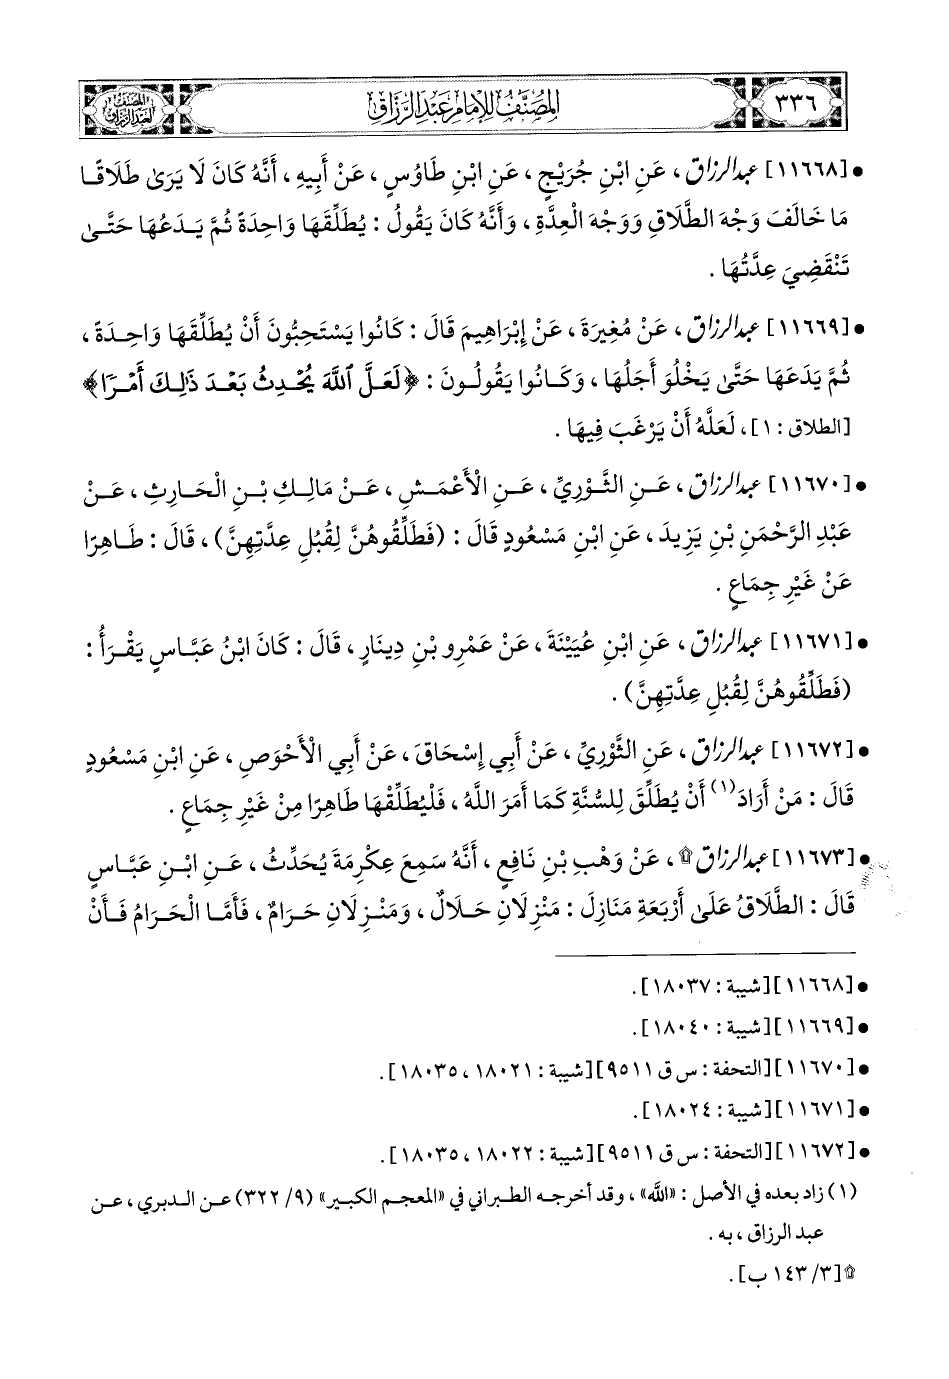 ٣٣٦
المصنف للإمام عبد الرزاق
المصنف لعبد الرزاق
• [١١٦٦٨] عبد الرزاق، عَنِ ابْنِ جُرَيْجٍ، عَنِ ابْنِ طَاوُسٍ، عَنْ أَبِيهِ، أَنَّهُ كَانَ لَا يَرَىٰ طَلَاقًا
مَا خَالَفَ وَجْهَ الطَّلَاقِ وَوَجْهَ الْعِدَّةِ، وَأَنَّهُ كَانَ يَقُولُ: يُطَلِّقُهَا وَاحِدَةً ثُمَّ يَدَعُهَا حَتَّىٰ
تَنْقَضِيَ عِدَّتُهَا.
• [١١٦٦٩] عبد الرزاق، عَنْ مُغِيرَةَ، عَنْ إِبْرَاهِيمَ قَالَ: كَانُوا يَسْتَحِبُّونَ أَنْ يُطَلِّقَهَا وَاحِدَةً،
ثُمَّ يَدَعَهَا حَتَّىٰ يَخْلُوَ أَجَلُهَا، وَكَانُوا يَقُولُونَ: ﴿لَعَلَّ ٱللَّهَ يُحْدِثُ بَعْدَ ذَٰلِكَ أَمْرًا﴾
[الطلاق: ١]، لَعَلَّهُ أَنْ يَرْغَبَ فِيهَا.
• [١١٦٧٠] عبد الرزاق، عَنِ الثَّوْرِيِّ، عَنِ الْأَعْمَشِ، عَنْ مَالِكِ بْنِ الْحَارِثِ، عَنْ
عَبْدِ الرَّحْمَنِ بْنِ يَزِيدَ، عَنِ ابْنِ مَسْعُودٍ قَالَ: (فَطَلِّقُوهُنَّ لِقُبُلِ عِدَّتِهِنَّ)، قَالَ: طَاهِرًا
عَنْ غَيْرِ جِمَاعٍ.
• [١١٦٧١] عبد الرزاق، عَنِ ابْنِ عُيَيْنَةَ، عَنْ عَمْرِو بْنِ دِينَارٍ، قَالَ: كَانَ ابْنُ عَبَّاسٍ يَقْرَأُ:
(فَطَلِّقُوهُنَّ لِقُبُلِ عِدَّتِهِنَّ).
• [١١٦٧٢] عبد الرزاق، عَنِ الثَّوْرِيِّ، عَنْ أَبِي إِسْحَاقَ، عَنْ أَبِي الْأَحْوَصِ، عَنِ ابْنِ مَسْعُودٍ
قَالَ: مَنْ أَرَادَ(١) أَنْ يُطَلِّقَ لِلسُّنَّةِ كَمَا أَمَرَ اللَّهُ، فَلْيُطَلِّقْهَا طَاهِرًا مِنْ غَيْرِ جِمَاعٍ.
• [١١٦٧٣] عبد الرزاق۩، عَنْ وَهْبِ بْنِ نَافِعٍ، أَنَّهُ سَمِعَ عِكْرِمَةَ يُحَدِّثُ، عَنِ ابْنِ عَبَّاسٍ
قَالَ: الطَّلَاقُ عَلَىٰ أَرْبَعَةِ مَنَازِلَ: مَنْزِلَانِ حَلَالٌ، وَمَنْزِلَانِ حَرَامٌ، فَأَمَّا الْحَرَامُ فَأَنْ
• [١١٦٦٨][شيبة: ١٨٠٣٧].
• [١١٦٦٩][شيبة: ١٨٠٤٠].
• [١١٦٧٠][التحفة: س ق ٩٥١١][شيبة: ١٨٠٢١، ١٨٠٣٥].
• [١١٦٧١][شيبة: ١٨٠٢٤].
• [١١٦٧٢][التحفة: س ق ٩٥١١][شيبة: ١٨٠٢٢، ١٨٠٣٥].
(١) زاد بعده في الأصل: «الله»، وقد أخرجه الطبراني في «المعجم الكبير» (٩/ ٣٢٢) عن الدبري، عن
عبد الرزاق، به.
۩[٣/ ١٤٣ ب].